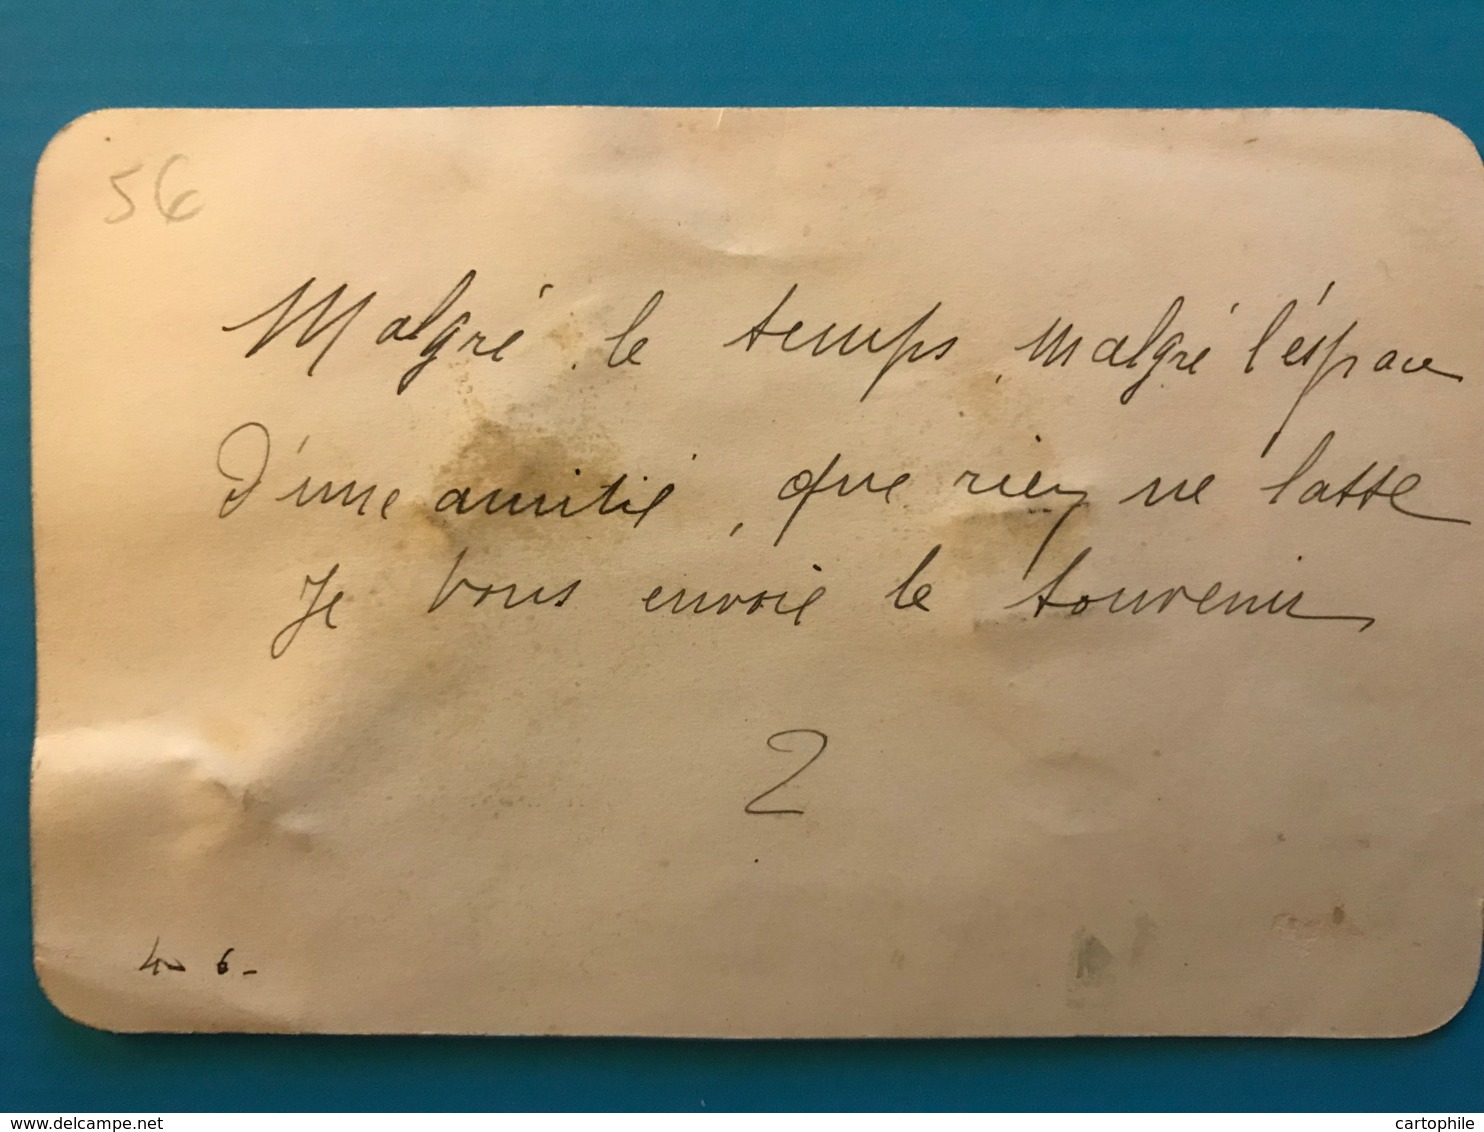 56
Malgré le temps, malgré l'éspace
D'une amitié, que rien ne lasse
Je vous envoie le souvenir
2
6-
www.delcampe.net
cartophile